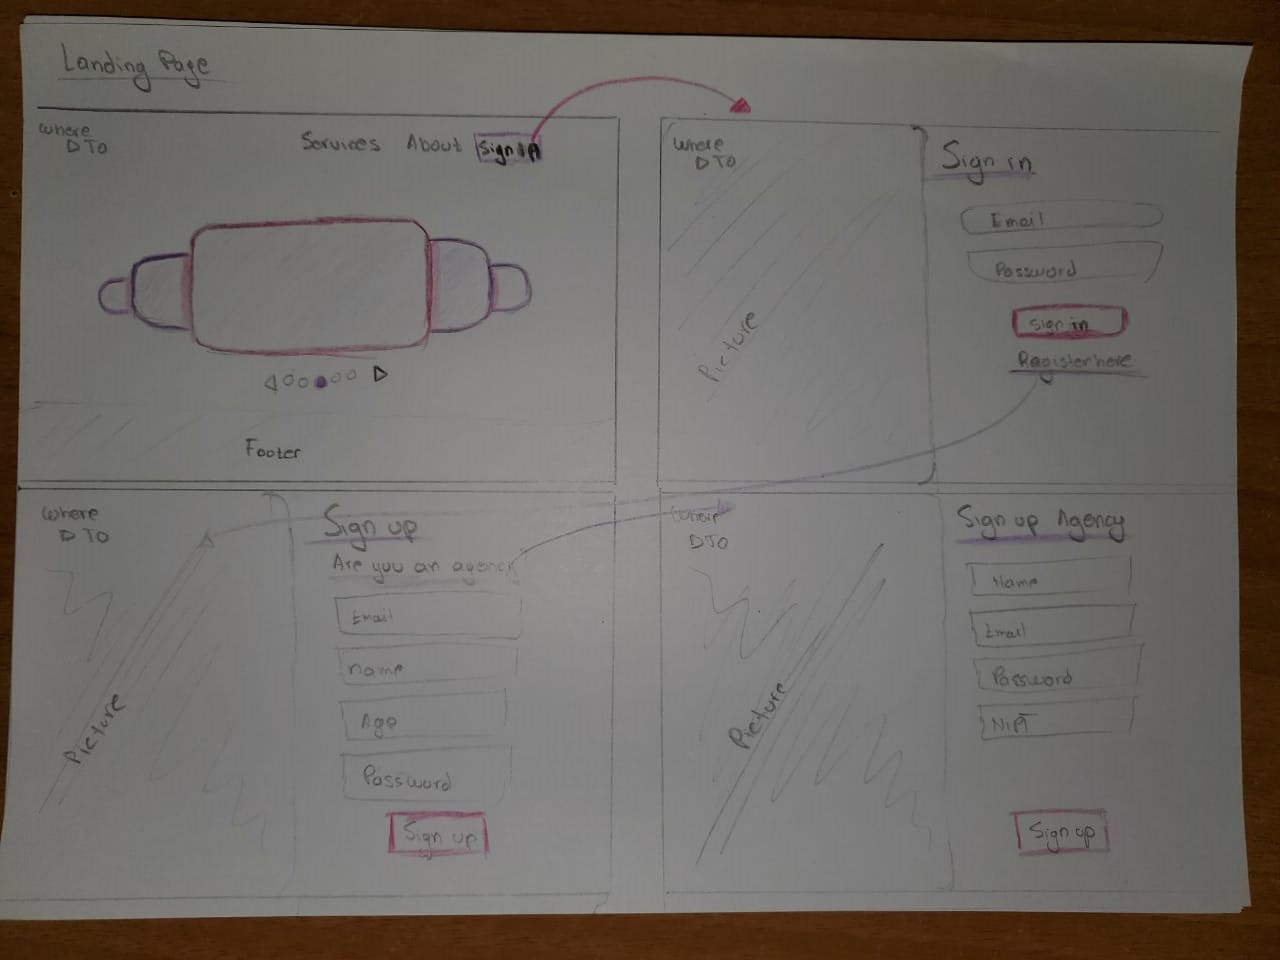 Landing Page
Where
DTO
Services About Sign in
Footer
Where
DTO
Picture
Sign in
Email
Password
sign in
Register here
Where
DTO
Picture
Sign up
Are you an agency
Email
name
Age
Password
Sign up
Where
DTO
Picture
Sign up Agency
Name
Email
Password
Sign up